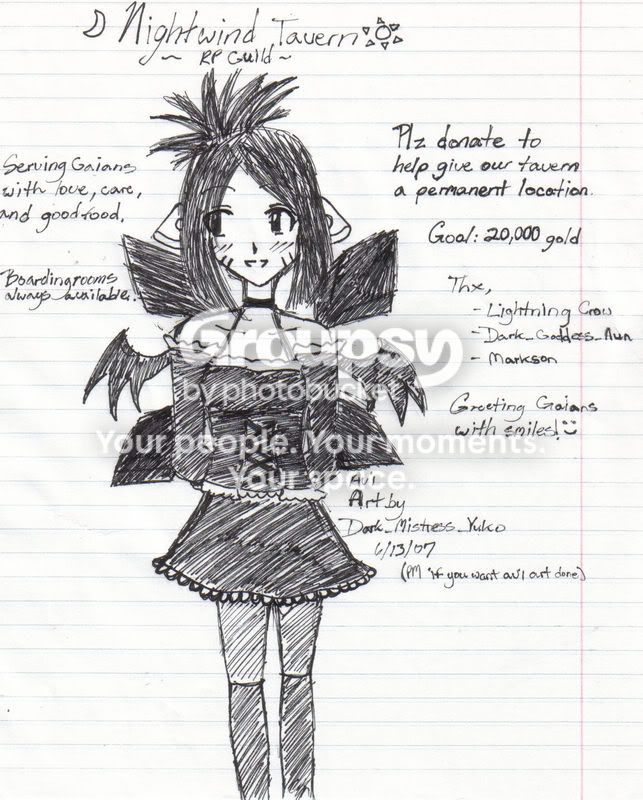 Nightwind Tavern
~ RP Guild ~
Serving Gaians
with love, care,
and good food.
Boarding rooms
always available.
Plz donate to
help give our tavern
a permanent location.
Goal: 20,000 gold
Thx,
- Lightning Crow
- Dark_Goddess_Aun
- Markson
Greeting Gaians
with smiles!
Groupsy
by photobucket
Your people. Your moments.
Your space.
Avi
Art by
Dark_Mistress_Yuko
6/13/07
(PM if you want avi art done)